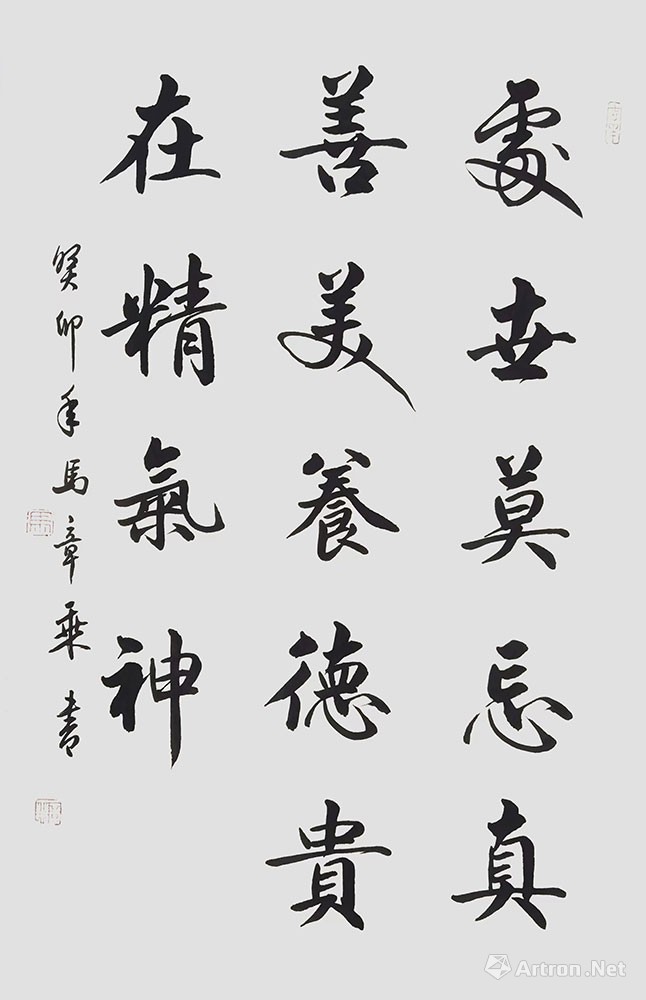 處世莫忘真
善美養德貴
在精氣神
癸卯年馬章乘書
Artron.Net